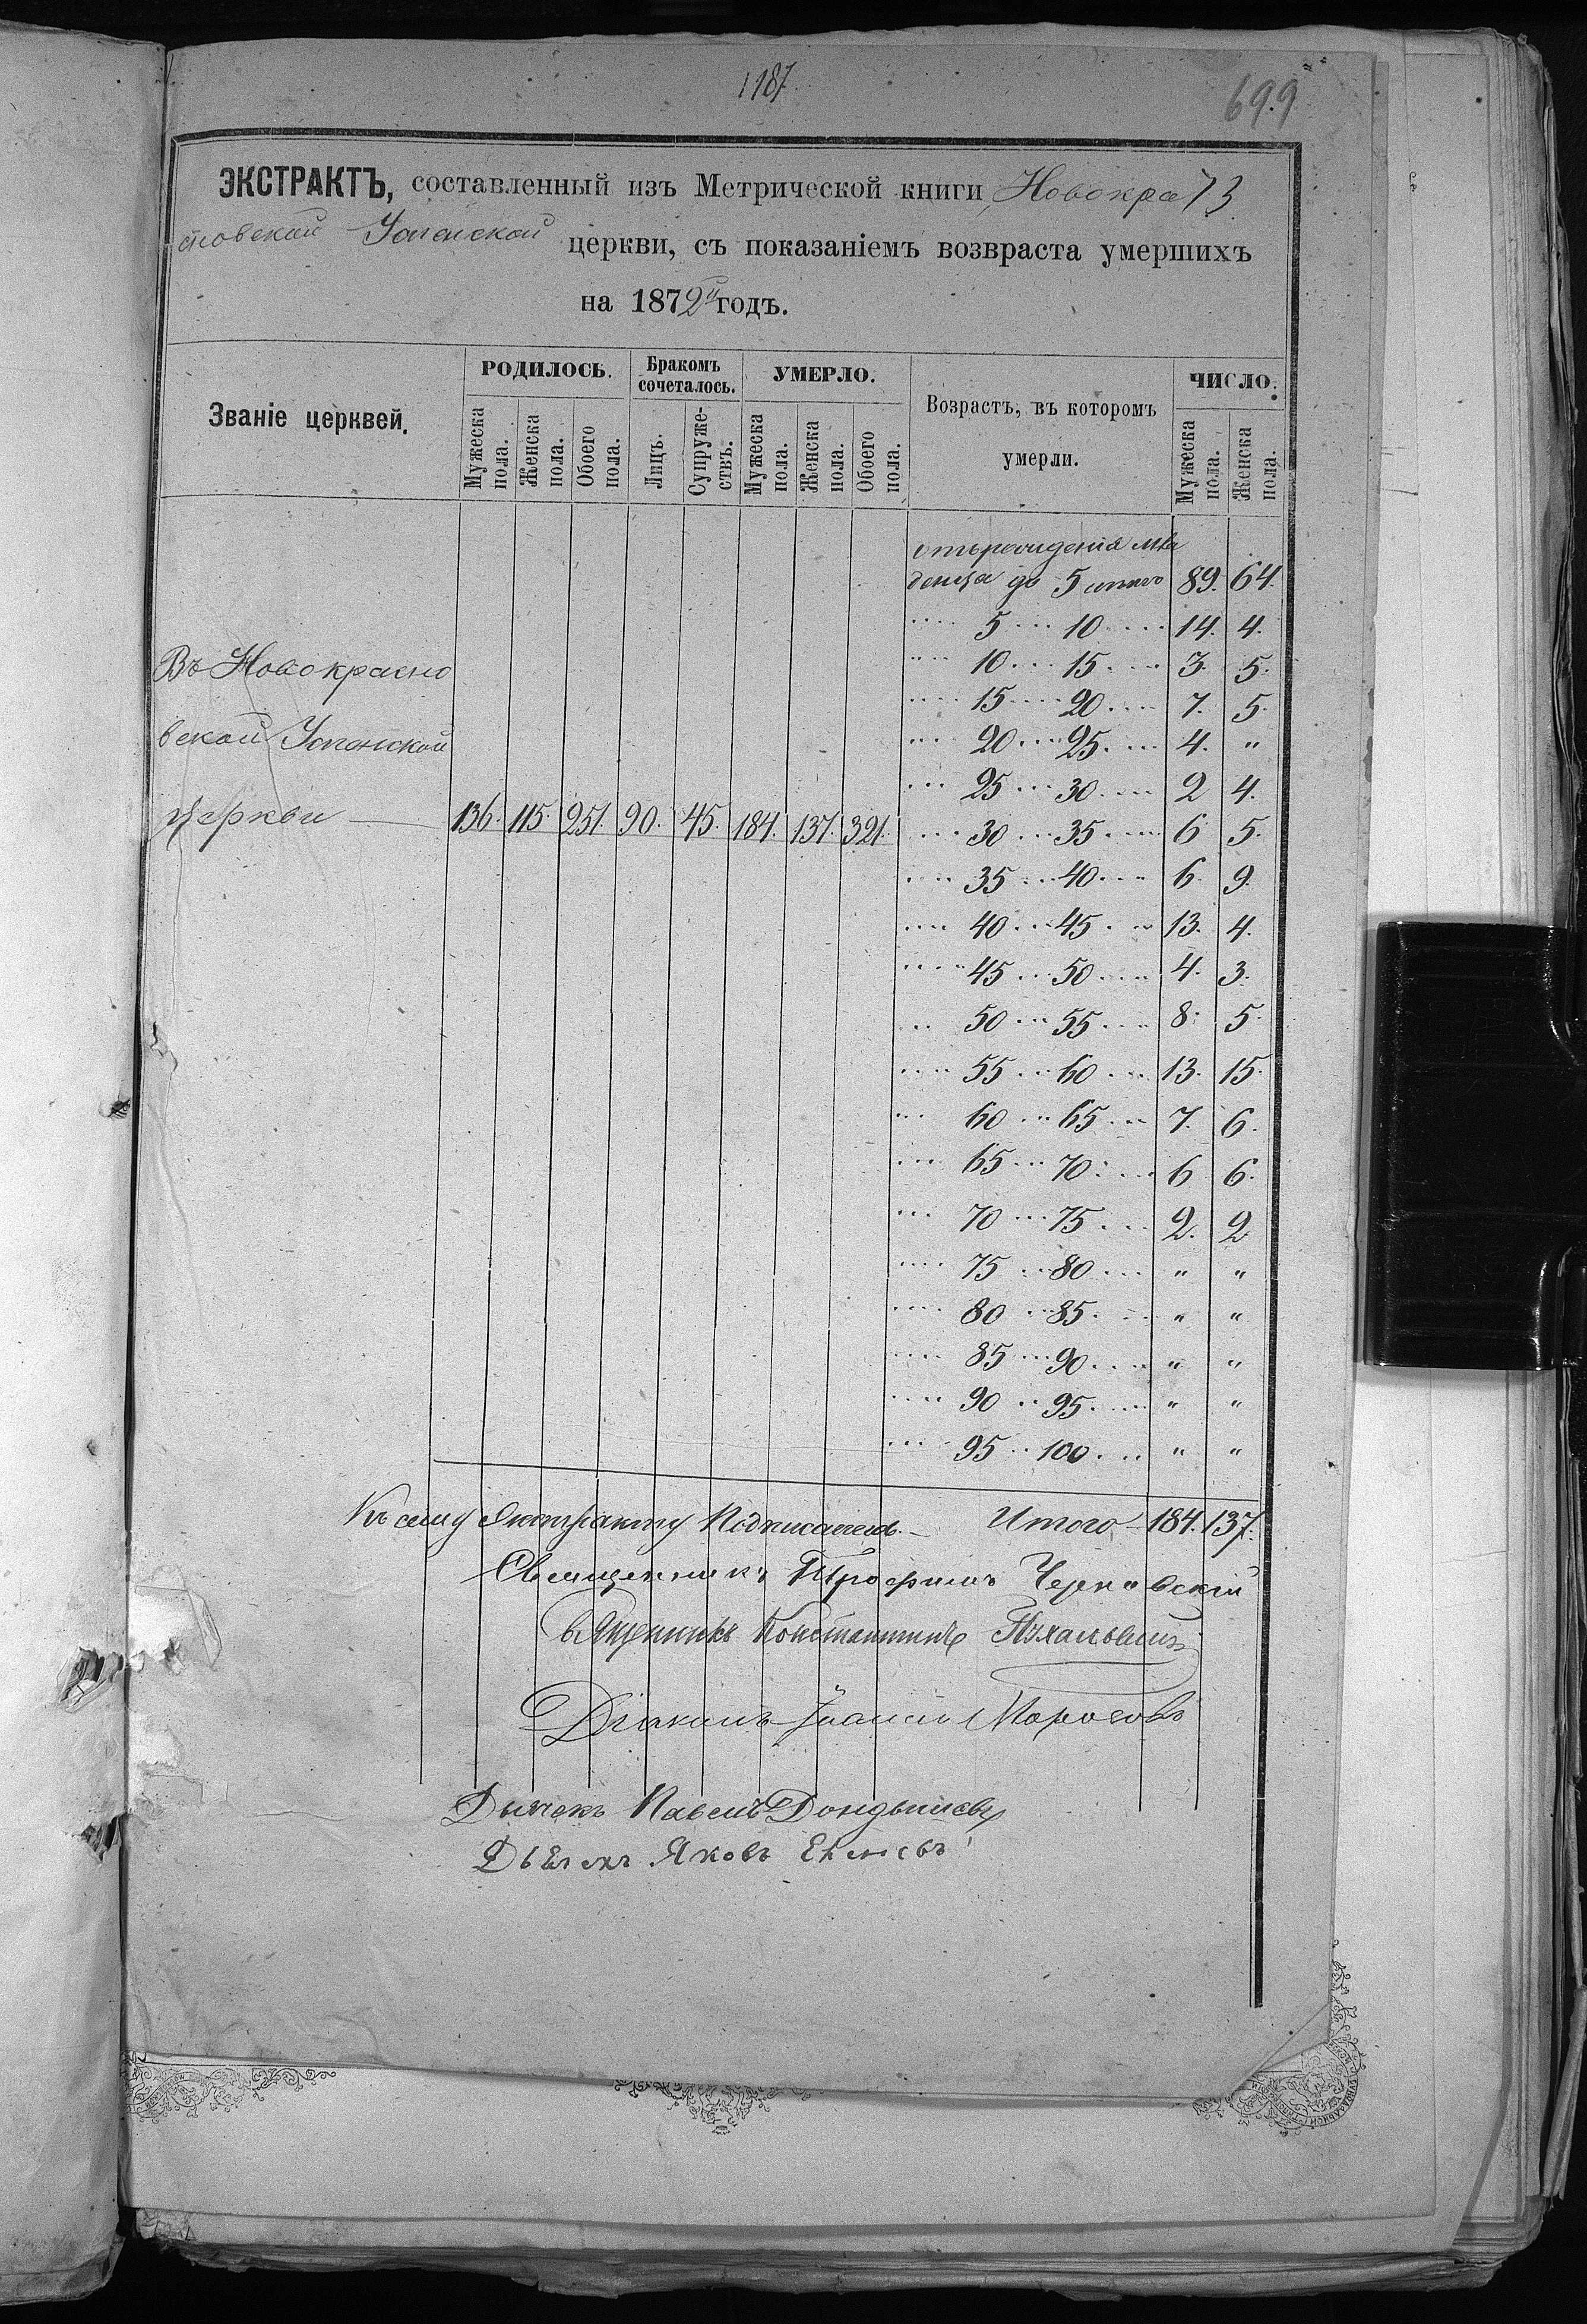 1187
699
ЭКСТРАКТЪ, составленный изъ Метрической книги Новокра 73
сновской Успенской церкви, съ показаніемъ возвраста умершихъ
на 1872й годъ.
Званіе церквей. РОДИЛОСЬ. Бракомъ сочеталось. УМЕРЛО. Возрастъ, въ которомъ умерли. ЧИСЛО.
Мужеска пола. Женска пола. Обоего пола. Лицъ. Супружествъ. Мужеска пола. Женска пола. Обоего пола. Мужеска пола. Женска пола.
отъ рожденія мла
денца до 5 89. 64.
5 10 14. 4.
10 15 3. 5.
Въ Новокрасно
15 20 7. 5.
вской Успенской
20 25 4. "
25 30 2 4.
церкви — 136. 115. 251. 90. 45. 184. 137. 321. 30 35 6 5.
35 40 6. 9.
40 45 13. 4.
45 50 4. 3.
50 55 8. 5.
55 60 13. 15.
60 65 7. 6.
65 70 6 6.
70 75 2. 2
75 80 " "
80 85 " "
85 90 " "
90 95 " "
95 100 " "
Къ сему Экстракту Подписались. Итого 184. 137.
Священникъ Трофимъ Черновскій
Священникъ Константинъ
Діаконъ Іоаннъ Моросовъ
Дьячекъ Павелъ
Дьячекъ Яковъ